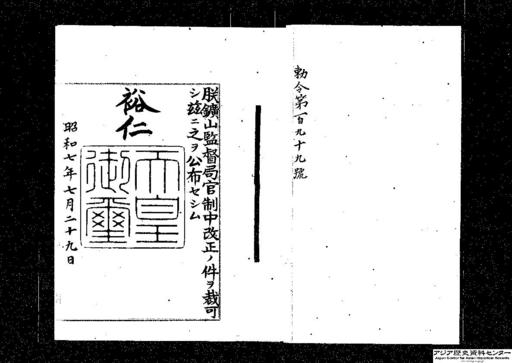 勅令第百九十九號
朕鑛山監督局官制中改正ノ件ヲ裁可
シ玆ニ之ヲ公布セシム
裕仁
天皇
御璽
昭和七年七月二十九日
アジア歴史資料センター
Japan Center for Asian Historical Records